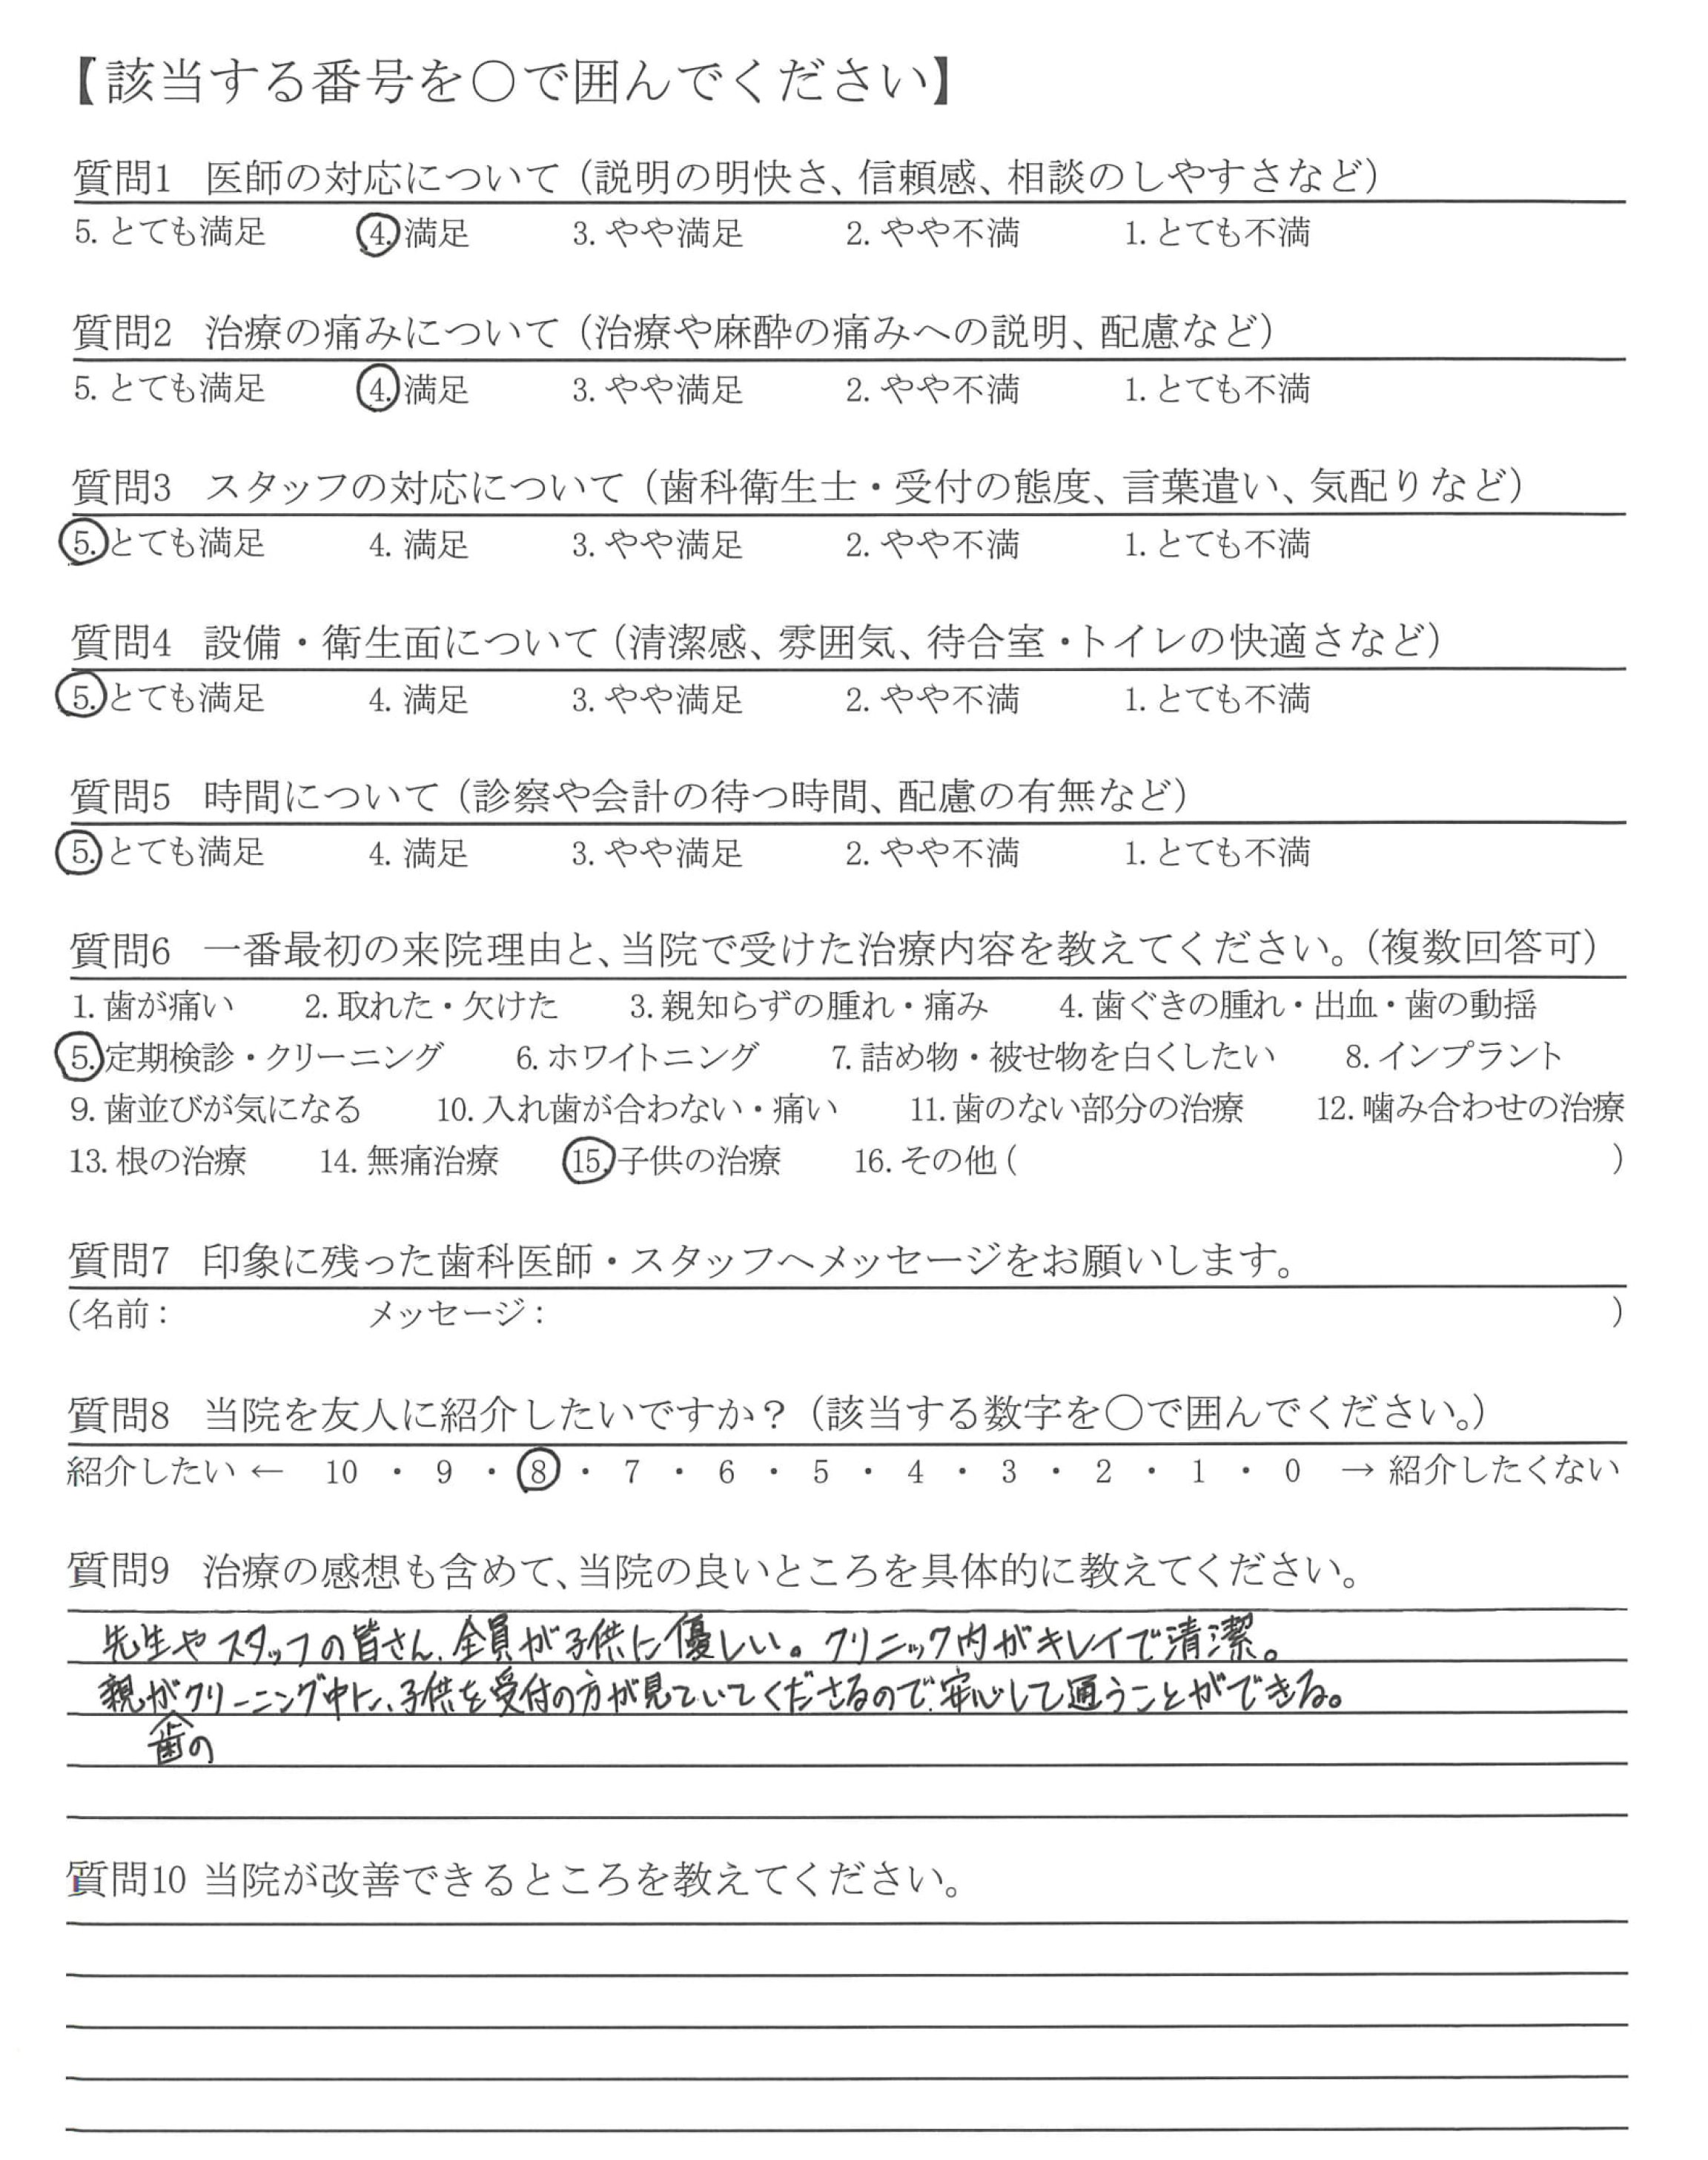 【該当する番号を○で囲んでください】
質問1 医師の対応について（説明の明快さ、信頼感、相談のしやすさなど）
5. とても満足 4. 満足 3. やや満足 2. やや不満 1. とても不満
質問2 治療の痛みについて（治療や麻酔の痛みへの説明、配慮など）
5. とても満足 4. 満足 3. やや満足 2. やや不満 1. とても不満
質問3 スタッフの対応について（歯科衛生士・受付の態度、言葉遣い、気配りなど）
5. とても満足 4. 満足 3. やや満足 2. やや不満 1. とても不満
質問4 設備・衛生面について（清潔感、雰囲気、待合室・トイレの快適さなど）
5. とても満足 4. 満足 3. やや満足 2. やや不満 1. とても不満
質問5 時間について（診察や会計の待つ時間、配慮の有無など）
5. とても満足 4. 満足 3. やや満足 2. やや不満 1. とても不満
質問6 一番最初の来院理由と、当院で受けた治療内容を教えてください。（複数回答可）
1. 歯が痛い 2. 取れた・欠けた 3. 親知らずの腫れ・痛み 4. 歯ぐきの腫れ・出血・歯の動揺
5. 定期検診・クリーニング 6. ホワイトニング 7. 詰め物・被せ物を白くしたい 8. インプラント
9. 歯並びが気になる 10. 入れ歯が合わない・痛い 11. 歯のない部分の治療 12. 噛み合わせの治療
13. 根の治療 14. 無痛治療 15. 子供の治療 16. その他（ ）
質問7 印象に残った歯科医師・スタッフへメッセージをお願いします。
（名前： メッセージ： ）
質問8 当院を友人に紹介したいですか？（該当する数字を○で囲んでください。）
紹介したい ← 10 ・ 9 ・ 8 ・ 7 ・ 6 ・ 5 ・ 4 ・ 3 ・ 2 ・ 1 ・ 0 → 紹介したくない
質問9 治療の感想も含めて、当院の良いところを具体的に教えてください。
先生やスタッフの皆さん、全員が子供に優しい。クリニック内がキレイで清潔。
親がクリーニング中に、子供を受付の方が見ていてくださるので、安心して通うことができる。
歯の
質問10 当院が改善できるところを教えてください。